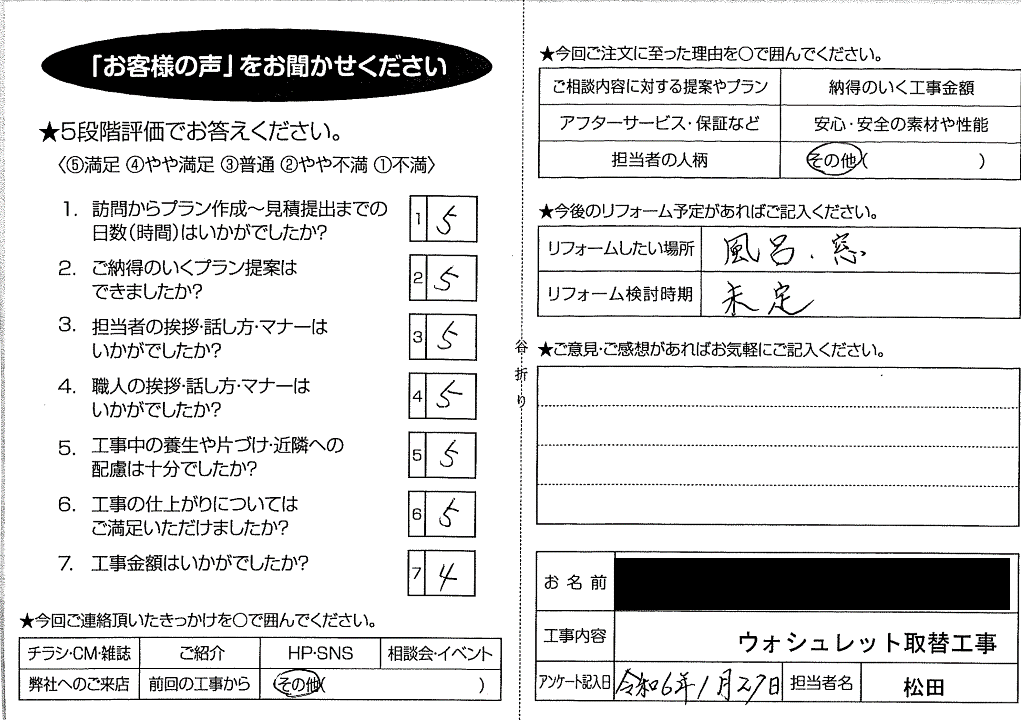 「お客様の声」をお聞かせください
★5段階評価でお答えください。
〈⑤満足 ④やや満足 ③普通 ②やや不満 ①不満〉
1. 訪問からプラン作成～見積提出までの
日数(時間)はいかがでしたか?
1 5
2. ご納得のいくプラン提案は
できましたか?
2 5
3. 担当者の挨拶・話し方・マナーは
いかがでしたか?
3 5
4. 職人の挨拶・話し方・マナーは
いかがでしたか?
4 5
5. 工事中の養生や片づけ・近隣への
配慮は十分でしたか?
5 5
6. 工事の仕上がりについては
ご満足いただけましたか?
6 5
7. 工事金額はいかがでしたか?
7 4
★今回ご連絡頂いたきっかけを○で囲んでください。
チラシ・CM・雑誌 ご紹介 HP・SNS 相談会・イベント
弊社へのご来店 前回の工事から その他( )
谷折り
★今回ご注文に至った理由を○で囲んでください。
ご相談内容に対する提案やプラン 納得のいく工事金額
アフターサービス・保証など 安心・安全の素材や性能
担当者の人柄 その他( )
★今後のリフォーム予定があればご記入ください。
リフォームしたい場所 風呂、窓
リフォーム検討時期 未定
★ご意見・ご感想があればお気軽にご記入ください。
お名前
工事内容 ウォシュレット取替工事
アンケート記入日 令和6年1月27日 担当者名 松田